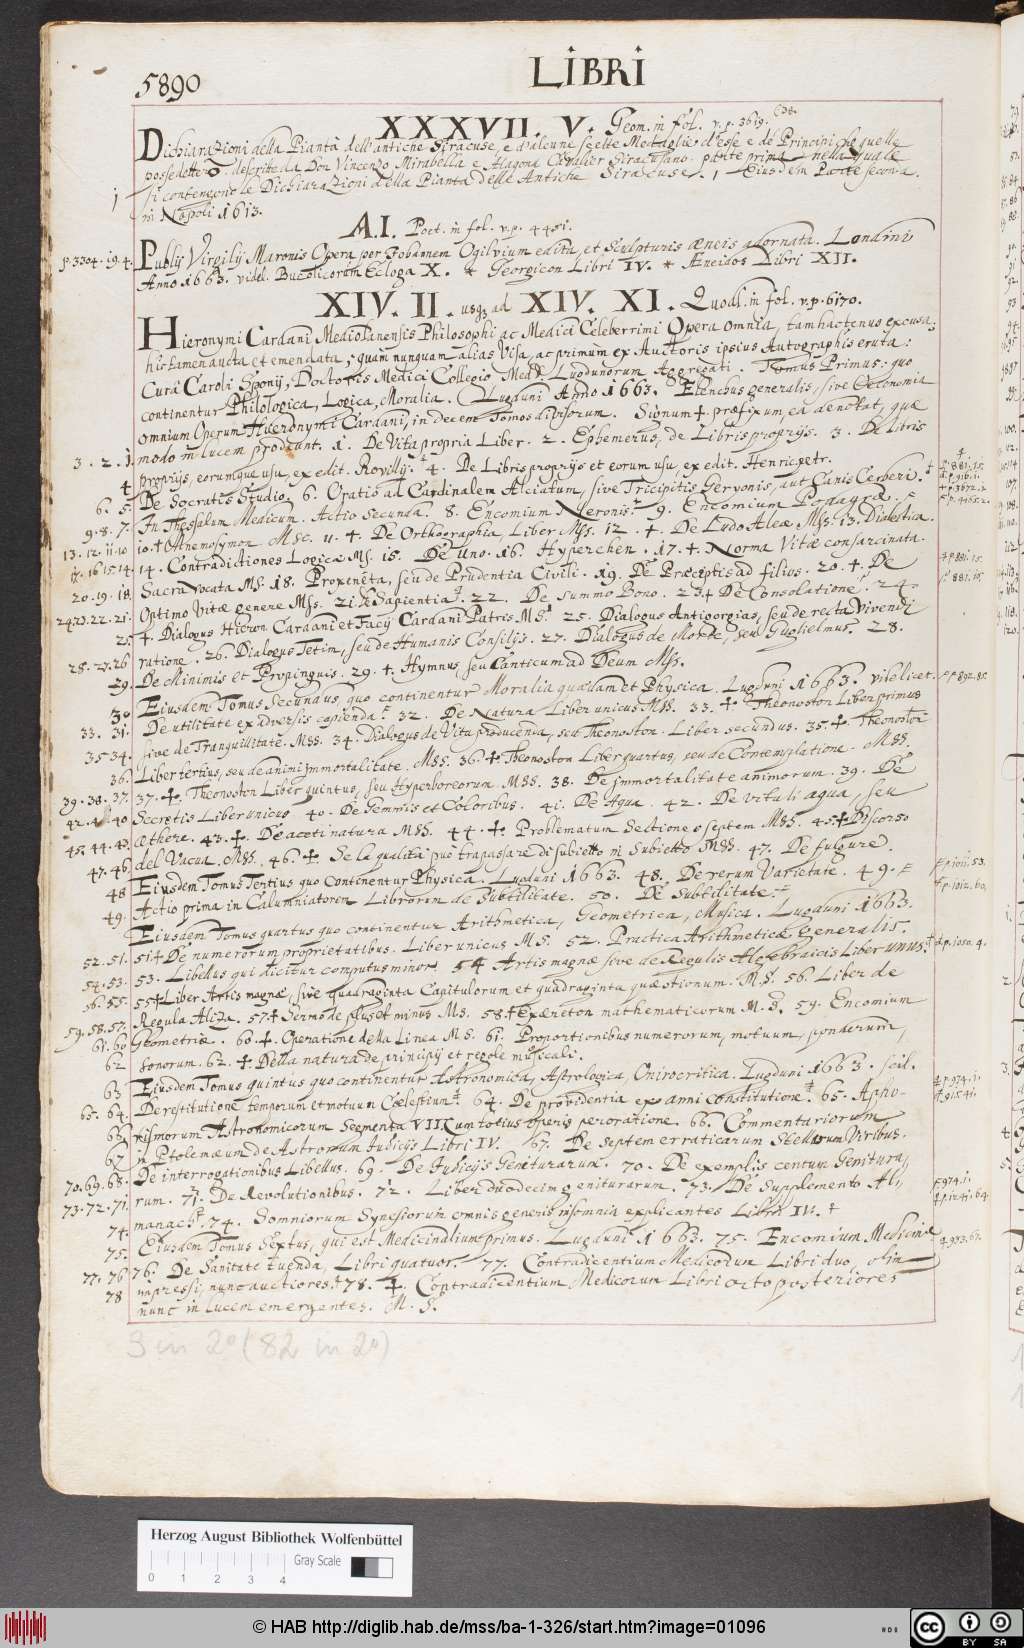 5890
LIBRI
XXXVII. V. Geom. in fol. v. p. 3619.
Dichiarazioni della Pianta dell'antiche Siracuse, e d'alcune scelte Medaglie d'esse e de Principi che quelle
possedettero descritte da Don Vincenzo Mirabella e Alagona Cavalier Siracusano. parte prima nella quale
1 si contengono le Dichiarazioni della Pianta delle Antiche Siracuse. 1 Eiusdem Parte seconda.
in Napoli 1613.
A.I. Poet. in fol. v. p. 4451.
p. 3304. 19. 4. Publij Virgilij Maronis Opera per Johannem Ogilvium edita, et Sculpturis æneis adornata. Londini
Anno 1663. videl. Bucolicorum Ecloga X. * Georgicon Libri IV. * Æneidos Libri XII.
XIV. II. usq; ad XIV. XI. Quodl. in fol. v. p. 6170.
Hieronymi Cardani Mediolanensis Philosophi ac Medici Celeberrimi Opera omnia, tam hactenus excusa;
his tamen aucta et emendata, quam nunquam alias visa, ac primum ex Auctoris ipsius Autographis eruta:
Cura Caroli Sponij, Doctoris Medici Collegio Medd. Lugdunorum Aggregati. Tomus Primus: quo
continentur Philologica, Logica, Moralia. Lugduni Anno 1663. Elenchus generalis, sive Œconomia
omnium Operum Hieronymi Cardani, in decem Tomos divisorum. Signum + præfixum ea denotat, quæ
3. 2. 1. modo in lucem prodeunt. 1. De Vita propria Liber. 2. Ephemerus, de Libris proprijs. 3. De libris
4 proprijs, eorumque usu, ex edit. Rovillij. 4. De Libris proprijs et eorum usu, ex edit. Henricpetr.
6. 5. De Socratis Studio. 6. Oratio ad Cardinalem Alciatum, sive Tricipitis Geryonis, aut Canis Cerberi.
9. 8. 7. In Thessalum Medicum. Actio secunda. 8. Encomium Neronis. 9. Encomium Podagræ.
13. 12. 11. 10 10. + Mnemosynon MSc. 11. +. De Orthographia, Liber Mss. 12. +. De Ludo Aleæ Mss. 13. Dialectica.
17. 16. 15. 14 14. Contradictiones Logicæ MS. 15. De Uno. 16. Hyperchen. 17. + Norma Vitæ consarcinata.
20. 19. 18. Sacra vocata MS. 18. Proxeneta, seu de Prudentia Civili. 19. De Præceptis ad filios. 20. +. De
24. 23. 22. 21. Optimo Vitæ genere Mss. 21. De Sapientia. 22. De Summo Bono. 23. + De Consolatione. 24.
25 +. Dialogus Hieron. Cardani et Facij Cardani Patris MS. 25. Dialogus Antigorgias, seu de recta vivendi
28. 27. 26 ratione. 26. Dialogus Tetim, seu de Humanis Consilijs. 27. Dialogus de Morte, seu Guglielmus. 28.
29. De Minimis et Propinquis. 29. +. Hymnus, seu Canticum ad Deum Mss.
30 Eiusdem Tomus Secundus, quo continentur Moralia quædam et Physica. Lugduni 1663. videlicet.
33. 31. De utilitate ex adversis capienda. 32. De Natura Liber unicus MSS. 33. +. Theonoston Liber primus
35. 34. sive de Tranquillitate. MSS. 34. Dialogus de Vita producenda, seu Theonoston. Liber secundus. 35. +. Theonoston
36. Liber tertius, seu de animi immortalitate. MSS. 36. +. Theonoston Liber quartus, seu de Contemplatione. MSS.
39. 38. 37. 37. +. Theonoston Liber quintus, seu Hyperboreorum MSS. 38. De immortalitate animorum. 39. De
42. 41. 40 Secretis Liber unicus. 40. De Gemmis et Coloribus. 41. De Aqua. 42. De vitali aqua, seu
45. 44. 43. æthere. 43. +. De aceti natura MSS. 44. +. Problematum Sectiones septem MSS. 45. + Discorso
47. 46. del Vacua. MSS. 46. +. Se la qualità può trapassare di subietto in Subietto MSS. 47. De fulgure.
48 Eiusdem Tomus Tertius quo continentur Physica. Lugduni 1663. 48. De rerum Varietate. 49.
49. Actio prima in Calumniatorem Librorum de Subtilitate. 50. De Subtilitate.
Eiusdem Tomus quartus quo continentur Arithmetica, Geometrica, Musica. Lugduni 1663.
52. 51. 51 + De numerorum proprietatibus. Liber unicus MS. 52. Practica Arithmeticæ generalis.
54. 53. 53. Libellus qui dicitur computus minor. 54 Artis magnæ sive de Regulis Algebraicis Liber unus.
56. 55. 55 + Liber Artis magnæ, sive quadraginta Capitulorum et quadraginta quæstionum. M.S. 56. Liber de
59. 58. 57. Regula Aliza. 57. + Sermo de plus et minus MS. 58. + Exæreton mathematicorum M.S. 59. Encomium
61. 60 Geometriæ. 60. +. Operatione della Linea MS. 61. Proportionibus numerorum, motuum, ponderum,
62 sonorum. 62. +. Della natura de principij et regole musicali.
63 Eiusdem Tomus quintus quo continentur Astronomica, Astrologica, Onirocritica. Lugduni 1663. scil.
65. 64. De restitutione temporum et motuum Cœlestium. 64. De providentia ex anni Constitutione. 65. Apho-
66 rismorum Astronomicorum Segmenta VII. Cum totius operis peroratione. 66. Commentariorum
67 in Ptolemæum de Astrorum Judicijs Libri IV. 67. De Septem erraticarum Stellarum Viribus.
70. 69. 68. De interrogationibus Libellus. 69. De Judicijs Geniturarum. 70. De exemplis centum Genitura-
73. 72. 71. rum. 71. De Revolutionibus. 72. Liber duodecim geniturarum. 73. De Supplemento Al-
74. manach. 74. Somniorum Synesiorum omnis generis insomnia explicantes Libri IV. +
75. Eiusdem Tomus Sextus, qui est Medicinalium primus. Lugduni 1663. 75. Encomium Medicinæ
77. 76 76. De Sanitate tuenda, Libri quatuor. 77. Contradicentium Medicorum Libri duo, olim
78 impressi, nunc auctiores. 78. +. Contradicentium Medicorum Libri octo posteriores
nunc in lucem emergentes. M. S.
3 in 2° (82 in 2°)
Herzog August Bibliothek Wolfenbüttel
Gray Scale
0 1 2 3 4
© HAB http://diglib.hab.de/mss/ba-1-326/start.htm?image=01096
HAB
cc BY SA